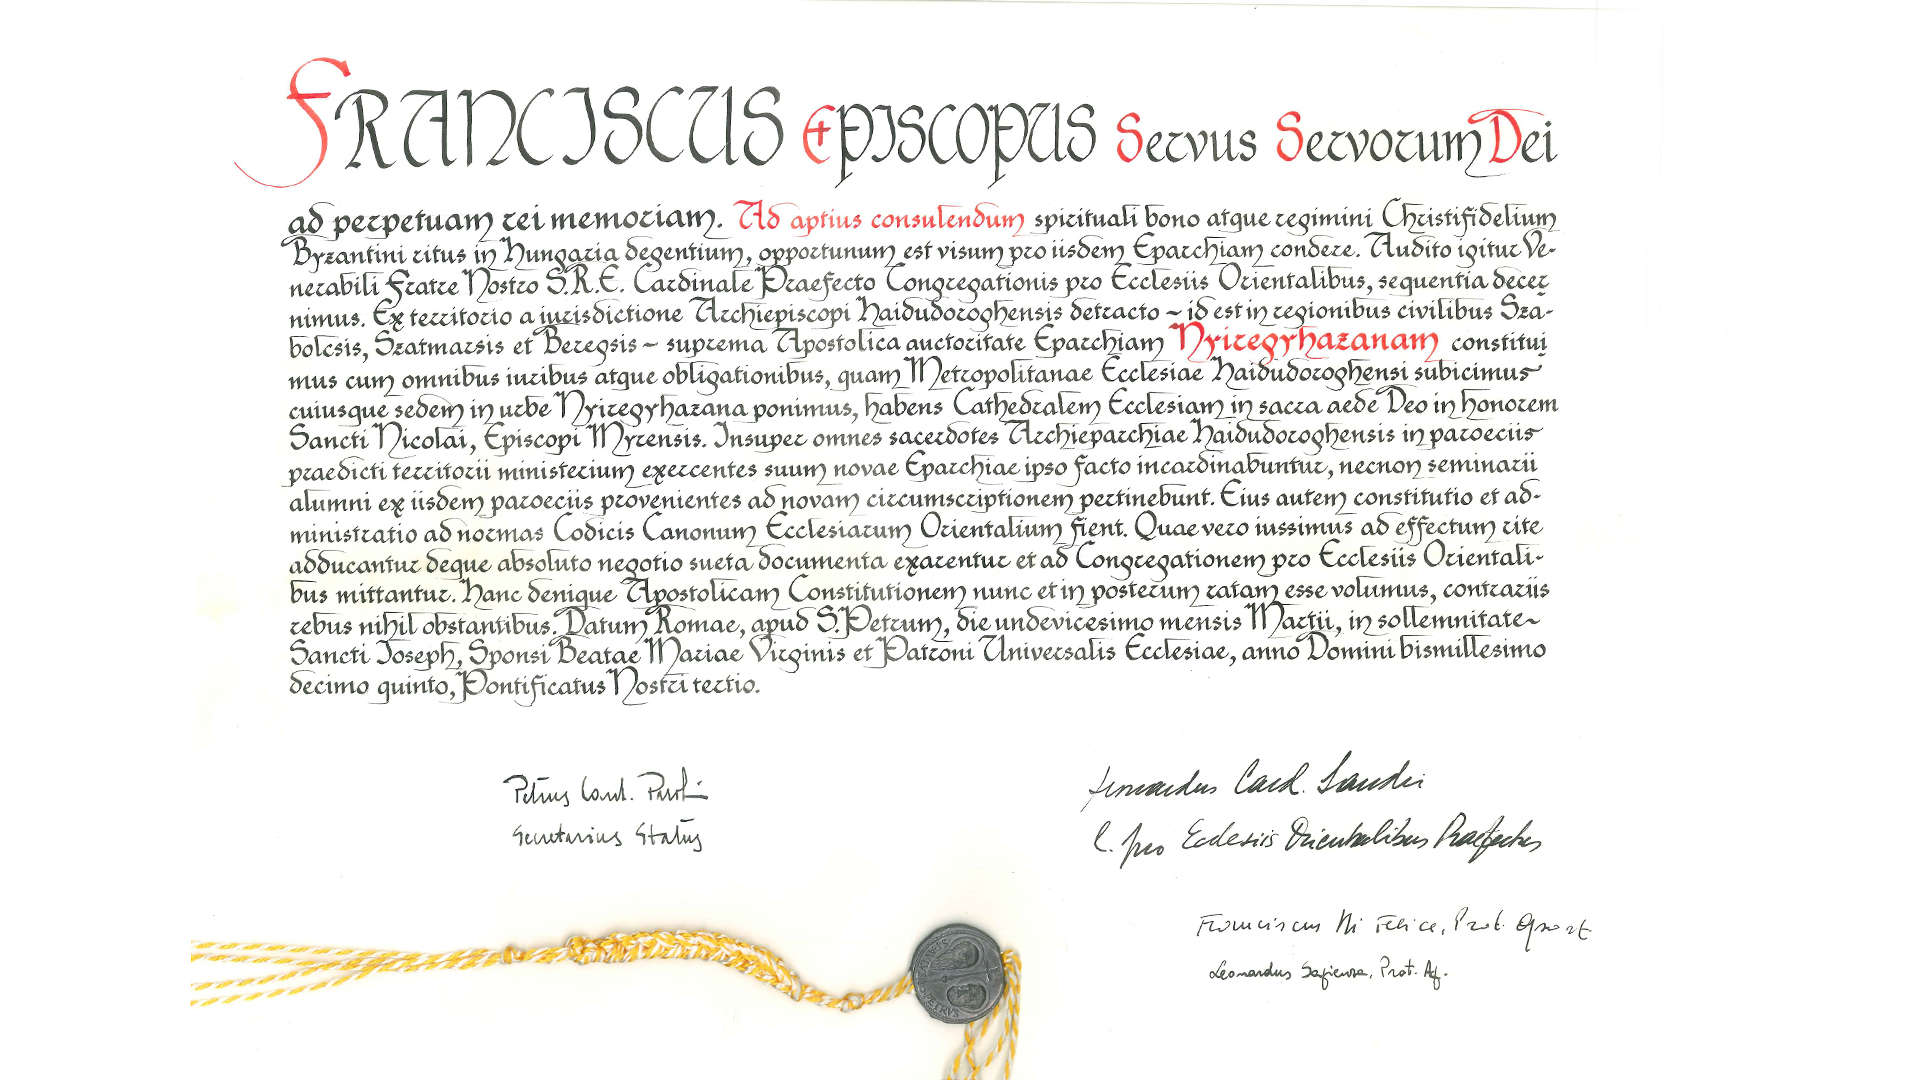 FRANCISCUS EPISCOPUS Servus Servorum Dei
ad perpetuam rei memoriam. Ad aptius consulendum spirituali bono atque regimini Christifidelium
Byzantini ritus in Hungaria degentium, opportunum est visum pro iisdem Eparchiam condere. Audito igitur Ve-
nerabili Fratre Nostro S.R.E. Cardinale Praefecto Congregationis pro Ecclesiis Orientalibus, sequentia decer
nimus. Ex territorio a iurisdictione Archiepiscopi Haidudoroghensis detracto ~ id est in regionibus civilibus Sza-
bolcsis, Szatmarsis et Beregsis ~ suprema Apostolica auctoritate Eparchiam Nyiregyhazanam constitui
mus cum omnibus iuribus atque obligationibus, quam Metropolitanae Ecclesiae Haidudoroghensi subicimus
cuiusque sedem in urbe Nyiregyhazana ponimus, habens Cathedralem Ecclesiam in sacra aede Deo in honorem
Sancti Nicolai, Episcopi Myrensis. Insuper omnes sacerdotes Archieparchiae Haidudoroghensis in paroeciis
praedicti territorii ministerium exercentes suum novae Eparchiae ipso facto incardinabuntur, necnon seminarii
alumni ex iisdem paroeciis provenientes ad novam circumscriptionem pertinebunt. Eius autem constitutio et ad-
ministratio ad normas Codicis Canonum Ecclesiarum Orientalium fient. Quae vero iussimus ad effectum rite
adducantur deque absoluto negotio sueta documenta exarentur et ad Congregationem pro Ecclesiis Orientali-
bus mittantur. Hanc denique Apostolicam Constitutionem nunc et in posterum ratam esse volumus, contrariis
rebus nihil obstantibus. Datum Romae, apud S. Petrum, die undevicesimo mensis Martii, in sollemnitate~
Sancti Joseph, Sponsi Beatae Mariae Virginis et Patroni Universalis Ecclesiae, anno Domini bismillesimo
decimo quinto, Pontificatus Nostri tertio.
Petrus Card. Parolin
Secretarius Status
Leonardus Card. Sandri
C. pro Ecclesiis Orientalibus Praefectus
Franciscus Di Felice, Prot.
Leonardus Sapienza, Prot. Ap.
S. PETRVS